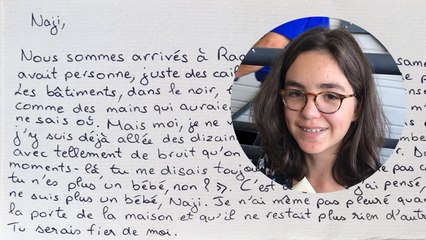 Naji,
Nous sommes arrivés à Ra
avait personne, juste des cail
Les bâtiments, dans le noir, t
comme des mains qui auraie
ne sais où. Mais moi, je ne
j'y suis déjà allée des dizain
avec tellement de bruit qu'on
moments-là, tu me disais toujou
tu n'es plus un bébé, non ? ». C'est d j'ai pensé,
ne suis plus un bébé, Naji. Je n'ai même pas pleuré quan
la porte de la maison et qu'il ne restait plus rien d'autr
Tu serais fier de moi.